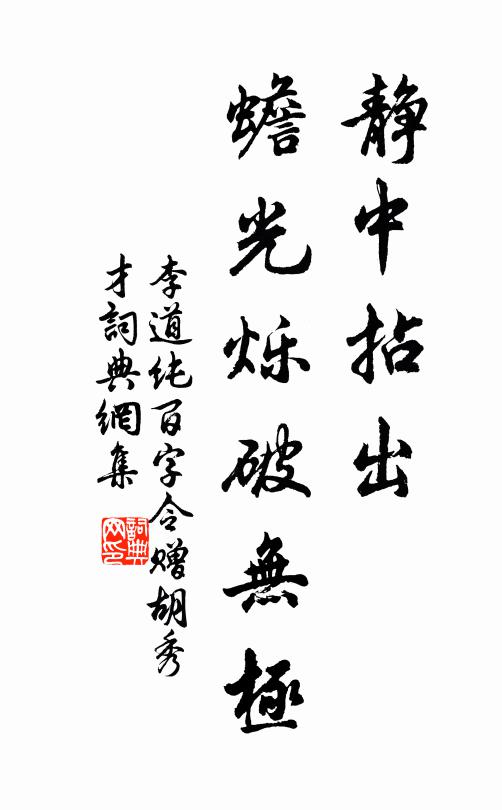 静中拈出
蟾光烁破無極
李道纯百字令赠胡秀
才詞典網集
詞典
网印